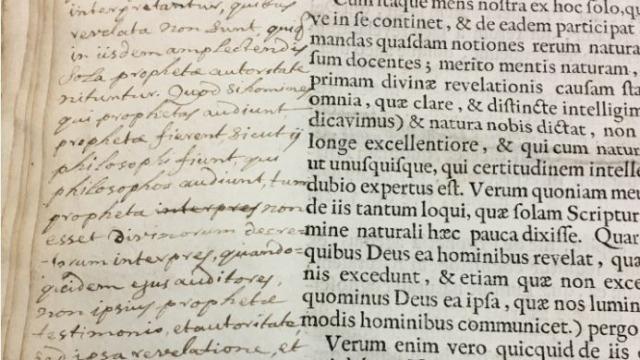 interpretantur, quibus
revelata non sunt, quiq
in iisdem amplectendis
sola prophetæ autoritate
nituntur. Quod si homines
qui prophetas audiunt,
prophetæ fierent, sicut ij
philosophi fiunt, qui
philosophos audiunt, tum
propheta interpres non
esset divinorum decre-
torum interpres, quando-
quidem ejus auditores,
non ipsius prophetæ
testimonio, et autoritate,
sed ipsa revelatione, et
Cum itaque mens nostra ex hoc solo, qu
ve in se continet, & de eadem participat
mandas quasdam notiones rerum natura
sum docentes; merito mentis naturam,
primam divinæ revelationis causam sta
omnia, quæ clare, & distincte intelligim
dicavimus) & natura nobis dictat, non
longe excellentiore, & qui cum natur
ut unusquisque, qui certitudinem intelle
dubio expertus est. Verum quoniam me
de iis tantum loqui, quæ solam Scriptur
mine naturali hæc pauca dixisse. Quar
quibus Deus ea hominibus revelat, quæ
nis excedunt, & etiam quæ non exce
quominus Deus ea ipsa, quæ nos lumin
modis hominibus communicet.) pergo
Verum enim vero quicquid de iis